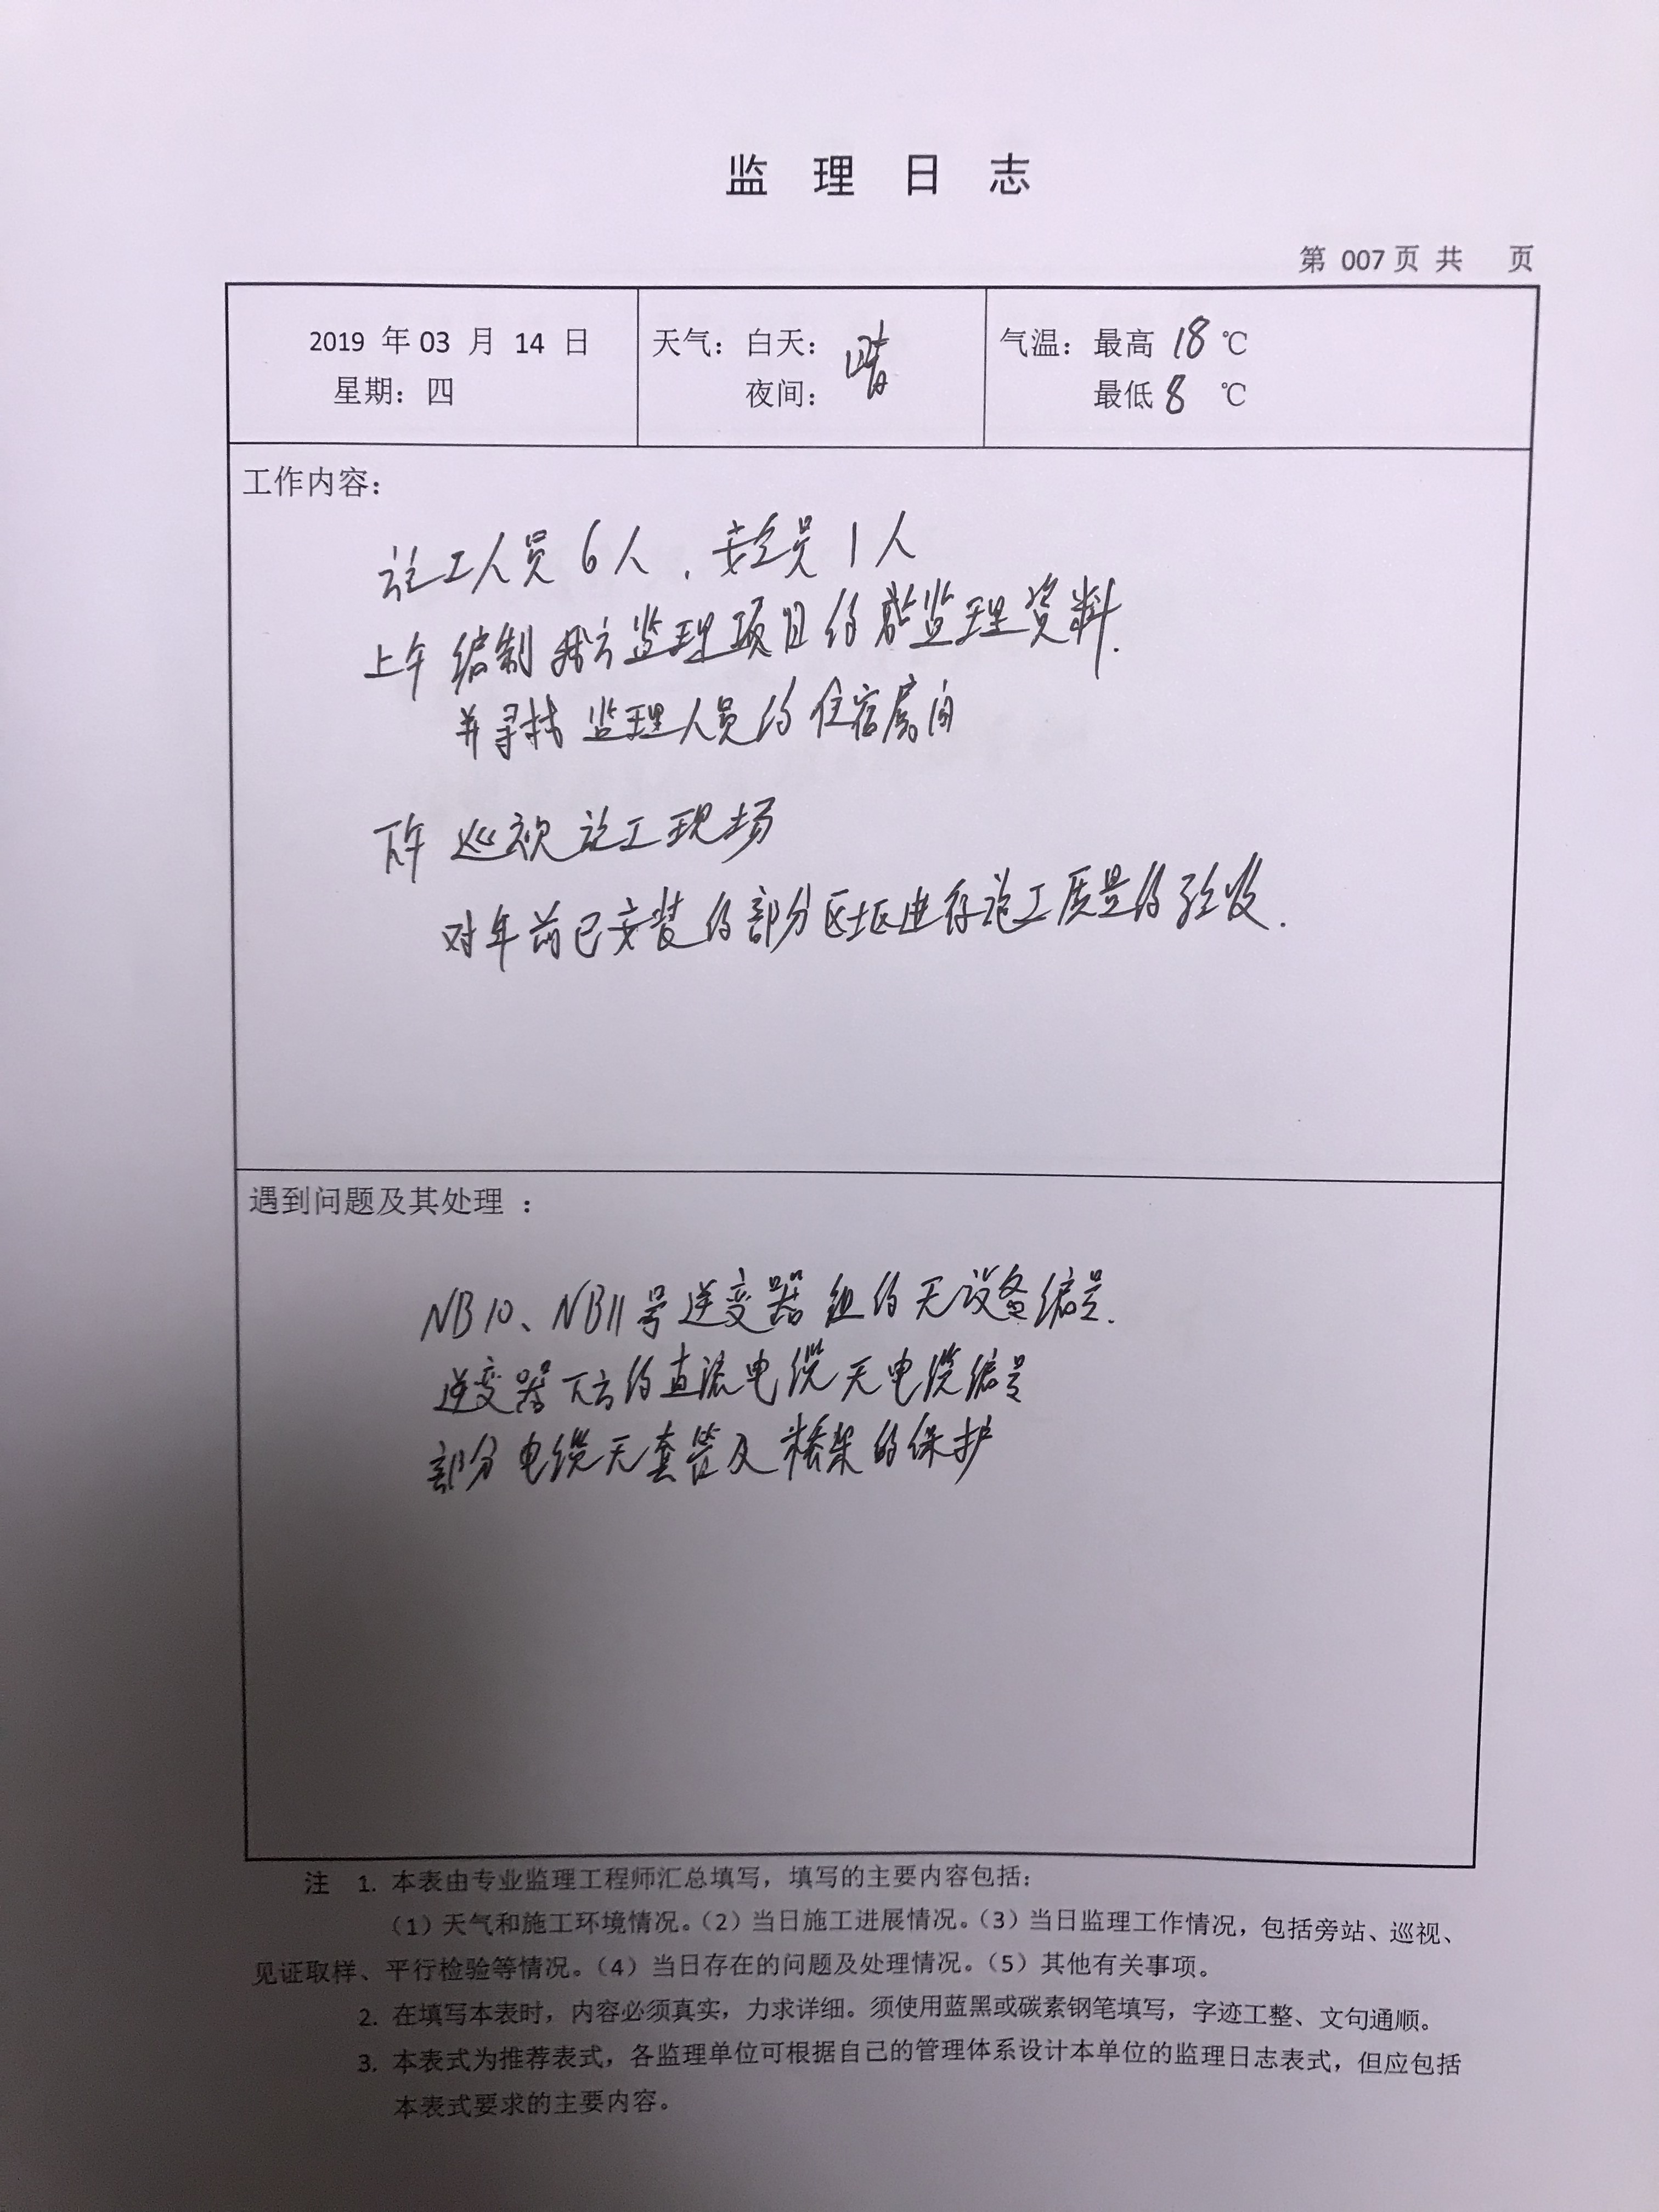 监理日志
第 007 页 共 页
2019 年 03 月 14 日
星期：四
天气：白天：晴
夜间：
气温：最高 18 ℃
最低 8 ℃
工作内容：
施工人员 6 人、安全员 1 人
上午 编制 我方监理项目的 监理资料.
并寻找 监理人员的住宿房间
下午 巡视施工现场
对年前已安装的部分区域进行施工质量的验收.
遇到问题及其处理 ：
NB10、NB11号逆变器 组的无设备编号.
逆变器下方的直流电缆无电缆编号
部分电缆无套管及桥架的保护
注 1. 本表由专业监理工程师汇总填写，填写的主要内容包括：
（1）天气和施工环境情况。（2）当日施工进展情况。（3）当日监理工作情况，包括旁站、巡视、
见证取样、平行检验等情况。（4）当日存在的问题及处理情况。（5）其他有关事项。
2. 在填写本表时，内容必须真实，力求详细。须使用蓝黑或碳素钢笔填写，字迹工整、文句通顺。
3. 本表式为推荐表式，各监理单位可根据自己的管理体系设计本单位的监理日志表式，但应包括
本表式要求的主要内容。